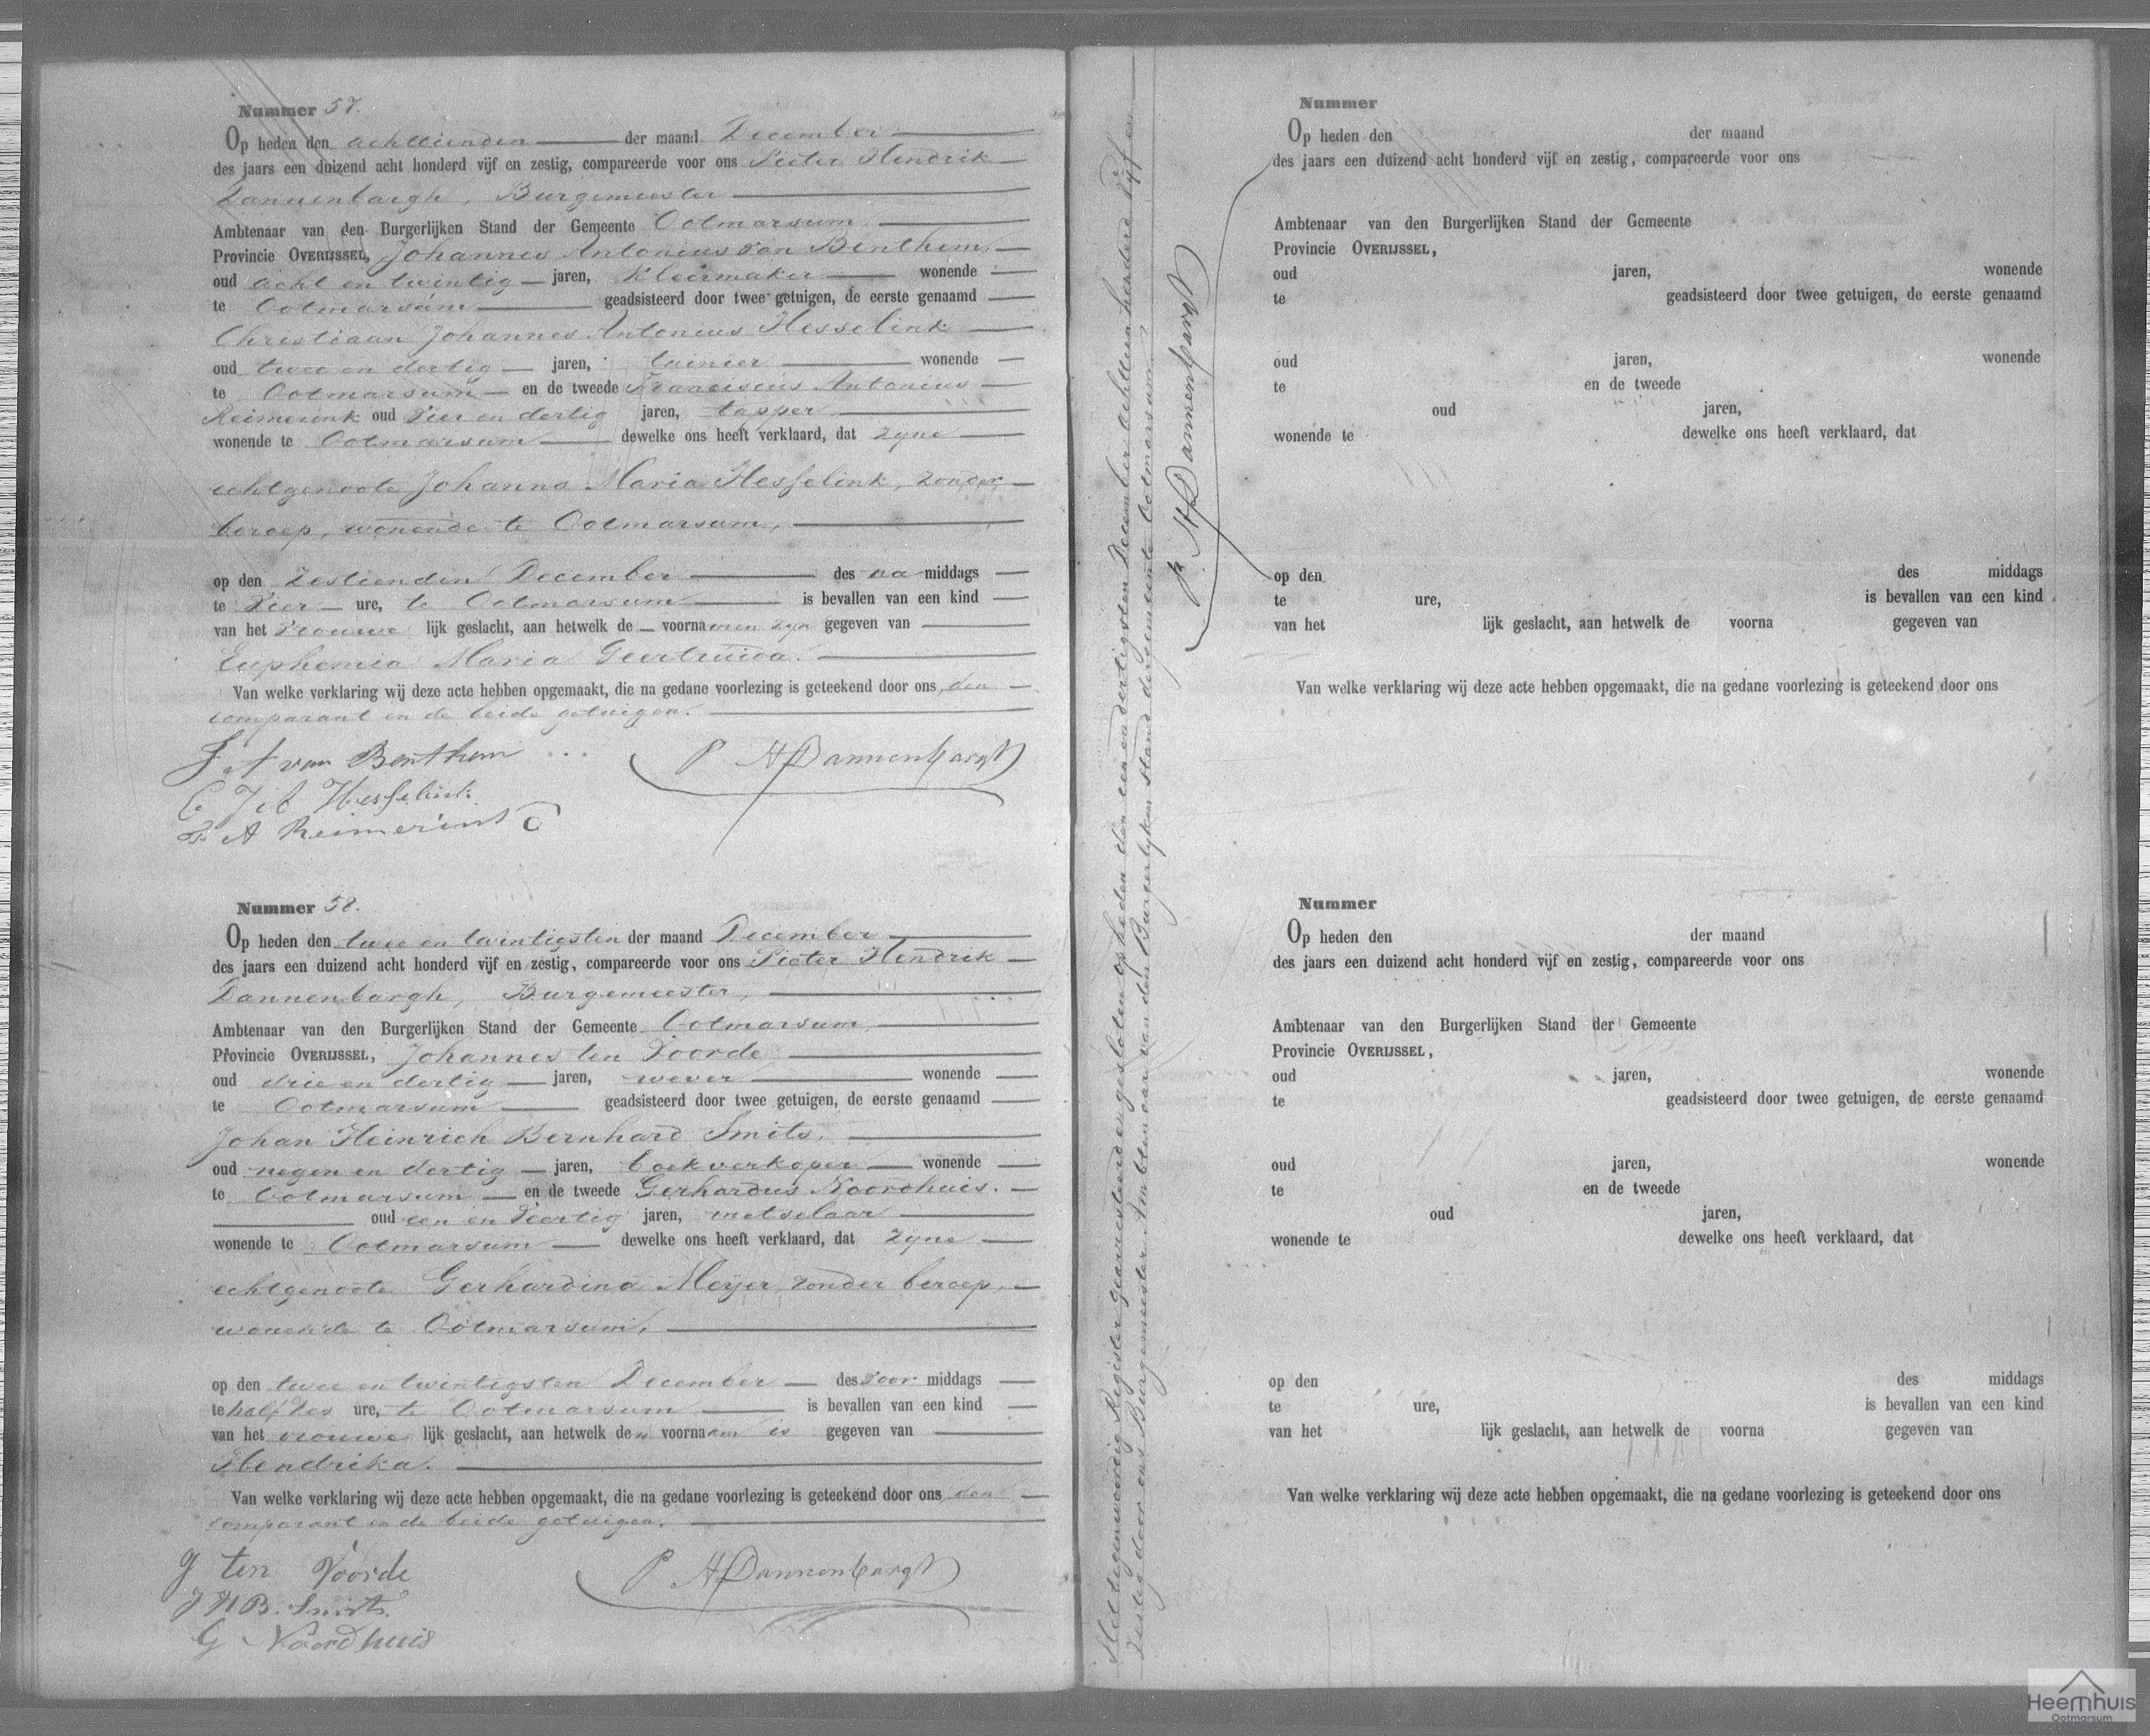 Nummer 57.
Op heden den achttienden der maand December
des jaars een duizend acht honderd vijf en zestig, compareerde voor ons Pieter Hendrik
Dannenbargh, Burgemeester
Ambtenaar van den Burgerlijken Stand der Gemeente Ootmarsum
Provincie OVERIJSSEL, Johannes Antonius van Benthem,
oud acht en twintig jaren, kleermaker wonende
te Ootmarsum geadsisteerd door twee getuigen, de eerste genaamd
Christiaan Johannes Antonius Hesselink
oud twee en dertig jaren, wonende
te Ootmarsum en de tweede Franciscus Antonius
Reimerink oud vier en dertig jaren, tapper
wonende te Ootmarsum dewelke ons heeft verklaard, dat zyne
echtgenoote Johanna Maria Hesselink, zonder
beroep, wonende te Ootmarsum,
op den zestienden December des na middags
te vier ure, te Ootmarsum is bevallen van een kind
van het vrouwe lijk geslacht, aan hetwelk de voornamen zyn gegeven van
Euphemia Maria Geertruida.
Van welke verklaring wij deze acte hebben opgemaakt, die na gedane voorlezing is geteekend door ons den
comparant en de beide getuigen.
J A van Benthem
P H Dannenbargh
C J A Hesselink
F. A Reimerink
Nummer 58.
Op heden den twee en twintigsten der maand December
des jaars een duizend acht honderd vijf en zestig, compareerde voor ons Pieter Hendrik
Dannenbargh, Burgemeester,
Ambtenaar van den Burgerlijken Stand der Gemeente Ootmarsum,
Provincie OVERIJSSEL, Johannes ten Voorde
oud drie en dertig jaren, wever wonende
te Ootmarsum geadsisteerd door twee getuigen, de eerste genaamd
Johan Heinrich Bernhard Smits,
oud negen en dertig jaren, boekverkoper wonende
te Ootmarsum en de tweede Gerhardus Noordhuis.
oud een en veertig jaren, metselaar
wonende te Ootmarsum dewelke ons heeft verklaard, dat zyne
echtgenoote Gerhardina Meyer, zonder beroep,
wonende te Ootmarsum,
op den twee en twintigsten December des voor middags
te half zes ure, te Ootmarsum is bevallen van een kind
van het vrouwe lijk geslacht, aan hetwelk den voornaam is gegeven van
Hendrika.
Van welke verklaring wij deze acte hebben opgemaakt, die na gedane voorlezing is geteekend door ons den
comparant en de beide getuigen.
J ten Voorde
P H Dannenbargh
J H B. Smits
G Noordhuis
Het tegenwoordig Register geannesteerd en gesloten op heden den een en dertigsten December achttien honderd vyf en
zestig door ons Burgemeester Ambtenaar van den Burgerlyken Stand der gemeente Ootmarsum.
P H Dannenbargh
Nummer
Op heden den der maand
des jaars een duizend acht honderd vijf en zestig, compareerde voor ons
Ambtenaar van den Burgerlijken Stand der Gemeente
Provincie OVERIJSSEL,
oud jaren, wonende
te geadsisteerd door twee getuigen, de eerste genaamd
oud jaren, wonende
te en de tweede
oud jaren,
wonende te dewelke ons heeft verklaard, dat
op den des middags
te ure, is bevallen van een kind
van het lijk geslacht, aan hetwelk de voorna gegeven van
Van welke verklaring wij deze acte hebben opgemaakt, die na gedane voorlezing is geteekend door ons
Nummer
Op heden den der maand
des jaars een duizend acht honderd vijf en zestig, compareerde voor ons
Ambtenaar van den Burgerlijken Stand der Gemeente
Provincie OVERIJSSEL,
oud jaren, wonende
te geadsisteerd door twee getuigen, de eerste genaamd
oud jaren, wonende
te en de tweede
oud jaren,
wonende te dewelke ons heeft verklaard, dat
op den des middags
te ure, is bevallen van een kind
van het lijk geslacht, aan hetwelk de voorna gegeven van
Van welke verklaring wij deze acte hebben opgemaakt, die na gedane voorlezing is geteekend door ons
Heemhuis
Ootmarsum